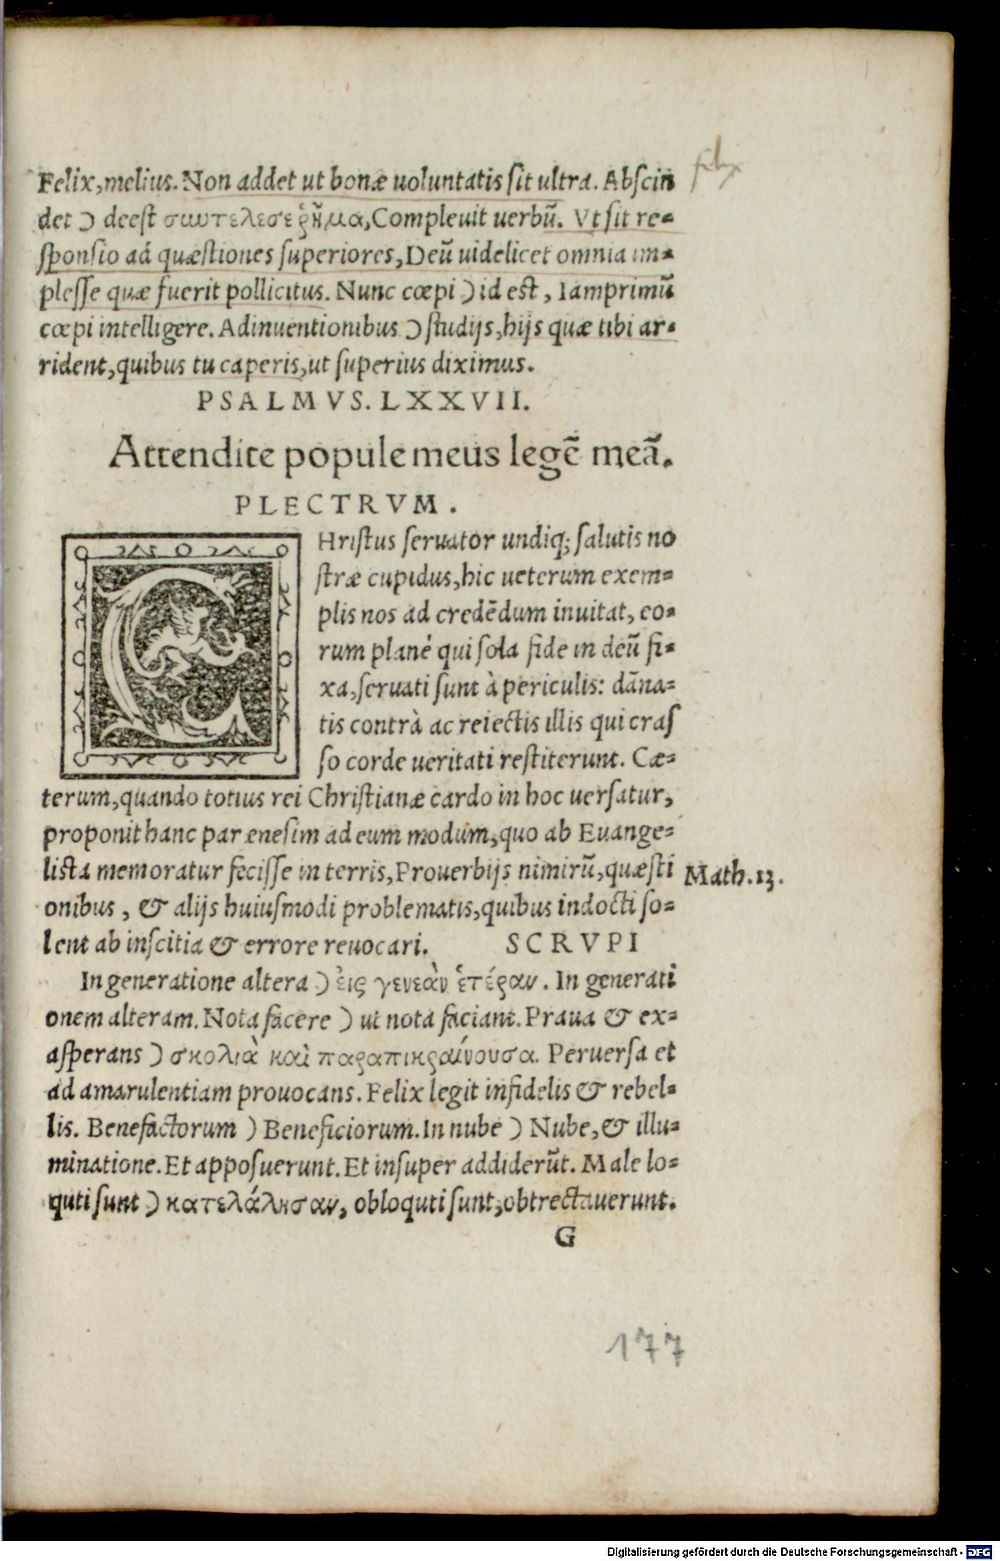 felix
Felix, melius. Non addet ut bonæ uoluntatis sit ultra. Abscin
det Ɔ deest συντελεσε ῥῆμα, Compleuit uerbū. Vt sit re-
sponsio ad quæstiones superiores, Deū uidelicet omnia im-
plesse quæ fuerit pollicitus. Nunc cœpi Ɔ id est, Iamprimū
cœpi intelligere. Adinuentionibus Ɔ studijs, hijs quæ tibi ar-
rident, quibus tu caperis, ut superius diximus.
PSALMVS. LXXVII.
Attendite popule meus legē meā.
PLECTRVM.
CHristus seruator undiq; salutis no
stræ cupidus, hic ueterum exem-
plis nos ad credēdum inuitat, eo-
rum planè qui sola fide in deū fi-
xa, seruati sunt à periculis: dāna-
tis contrà ac reiectis illis qui cras
so corde ueritati restiterunt. Cæ-
terum, quando totius rei Christianæ cardo in hoc uersatur,
proponit hanc parænesim ad eum modum, quo ab Euange-
lista memoratur fecisse in terris, Prouerbijs nimirū, quæsti
Math. 13.
onibus, & alijs huiusmodi problematis, quibus indocti so-
lent ab inscitia & errore reuocari. SCRVPI
In generatione altera Ɔ εἰς γενεὰν ἑτέραν. In generati
onem alteram. Nota facere Ɔ ut nota faciant. Praua & ex-
asperans Ɔ σκολιὰ καὶ παραπικραίνουσα. Peruersa et
ad amarulentiam prouocans. Felix legit infidelis & rebel-
lis. Benefactorum Ɔ Beneficiorum. In nube Ɔ Nube, & illu-
minatione. Et apposuerunt. Et insuper addiderūt. Male lo-
quti sunt Ɔ κατελάλησαν, obloquti sunt, obtrectauerunt.
G
177
Digitalisierung gefördert durch die Deutsche Forschungsgemeinschaft - DFG